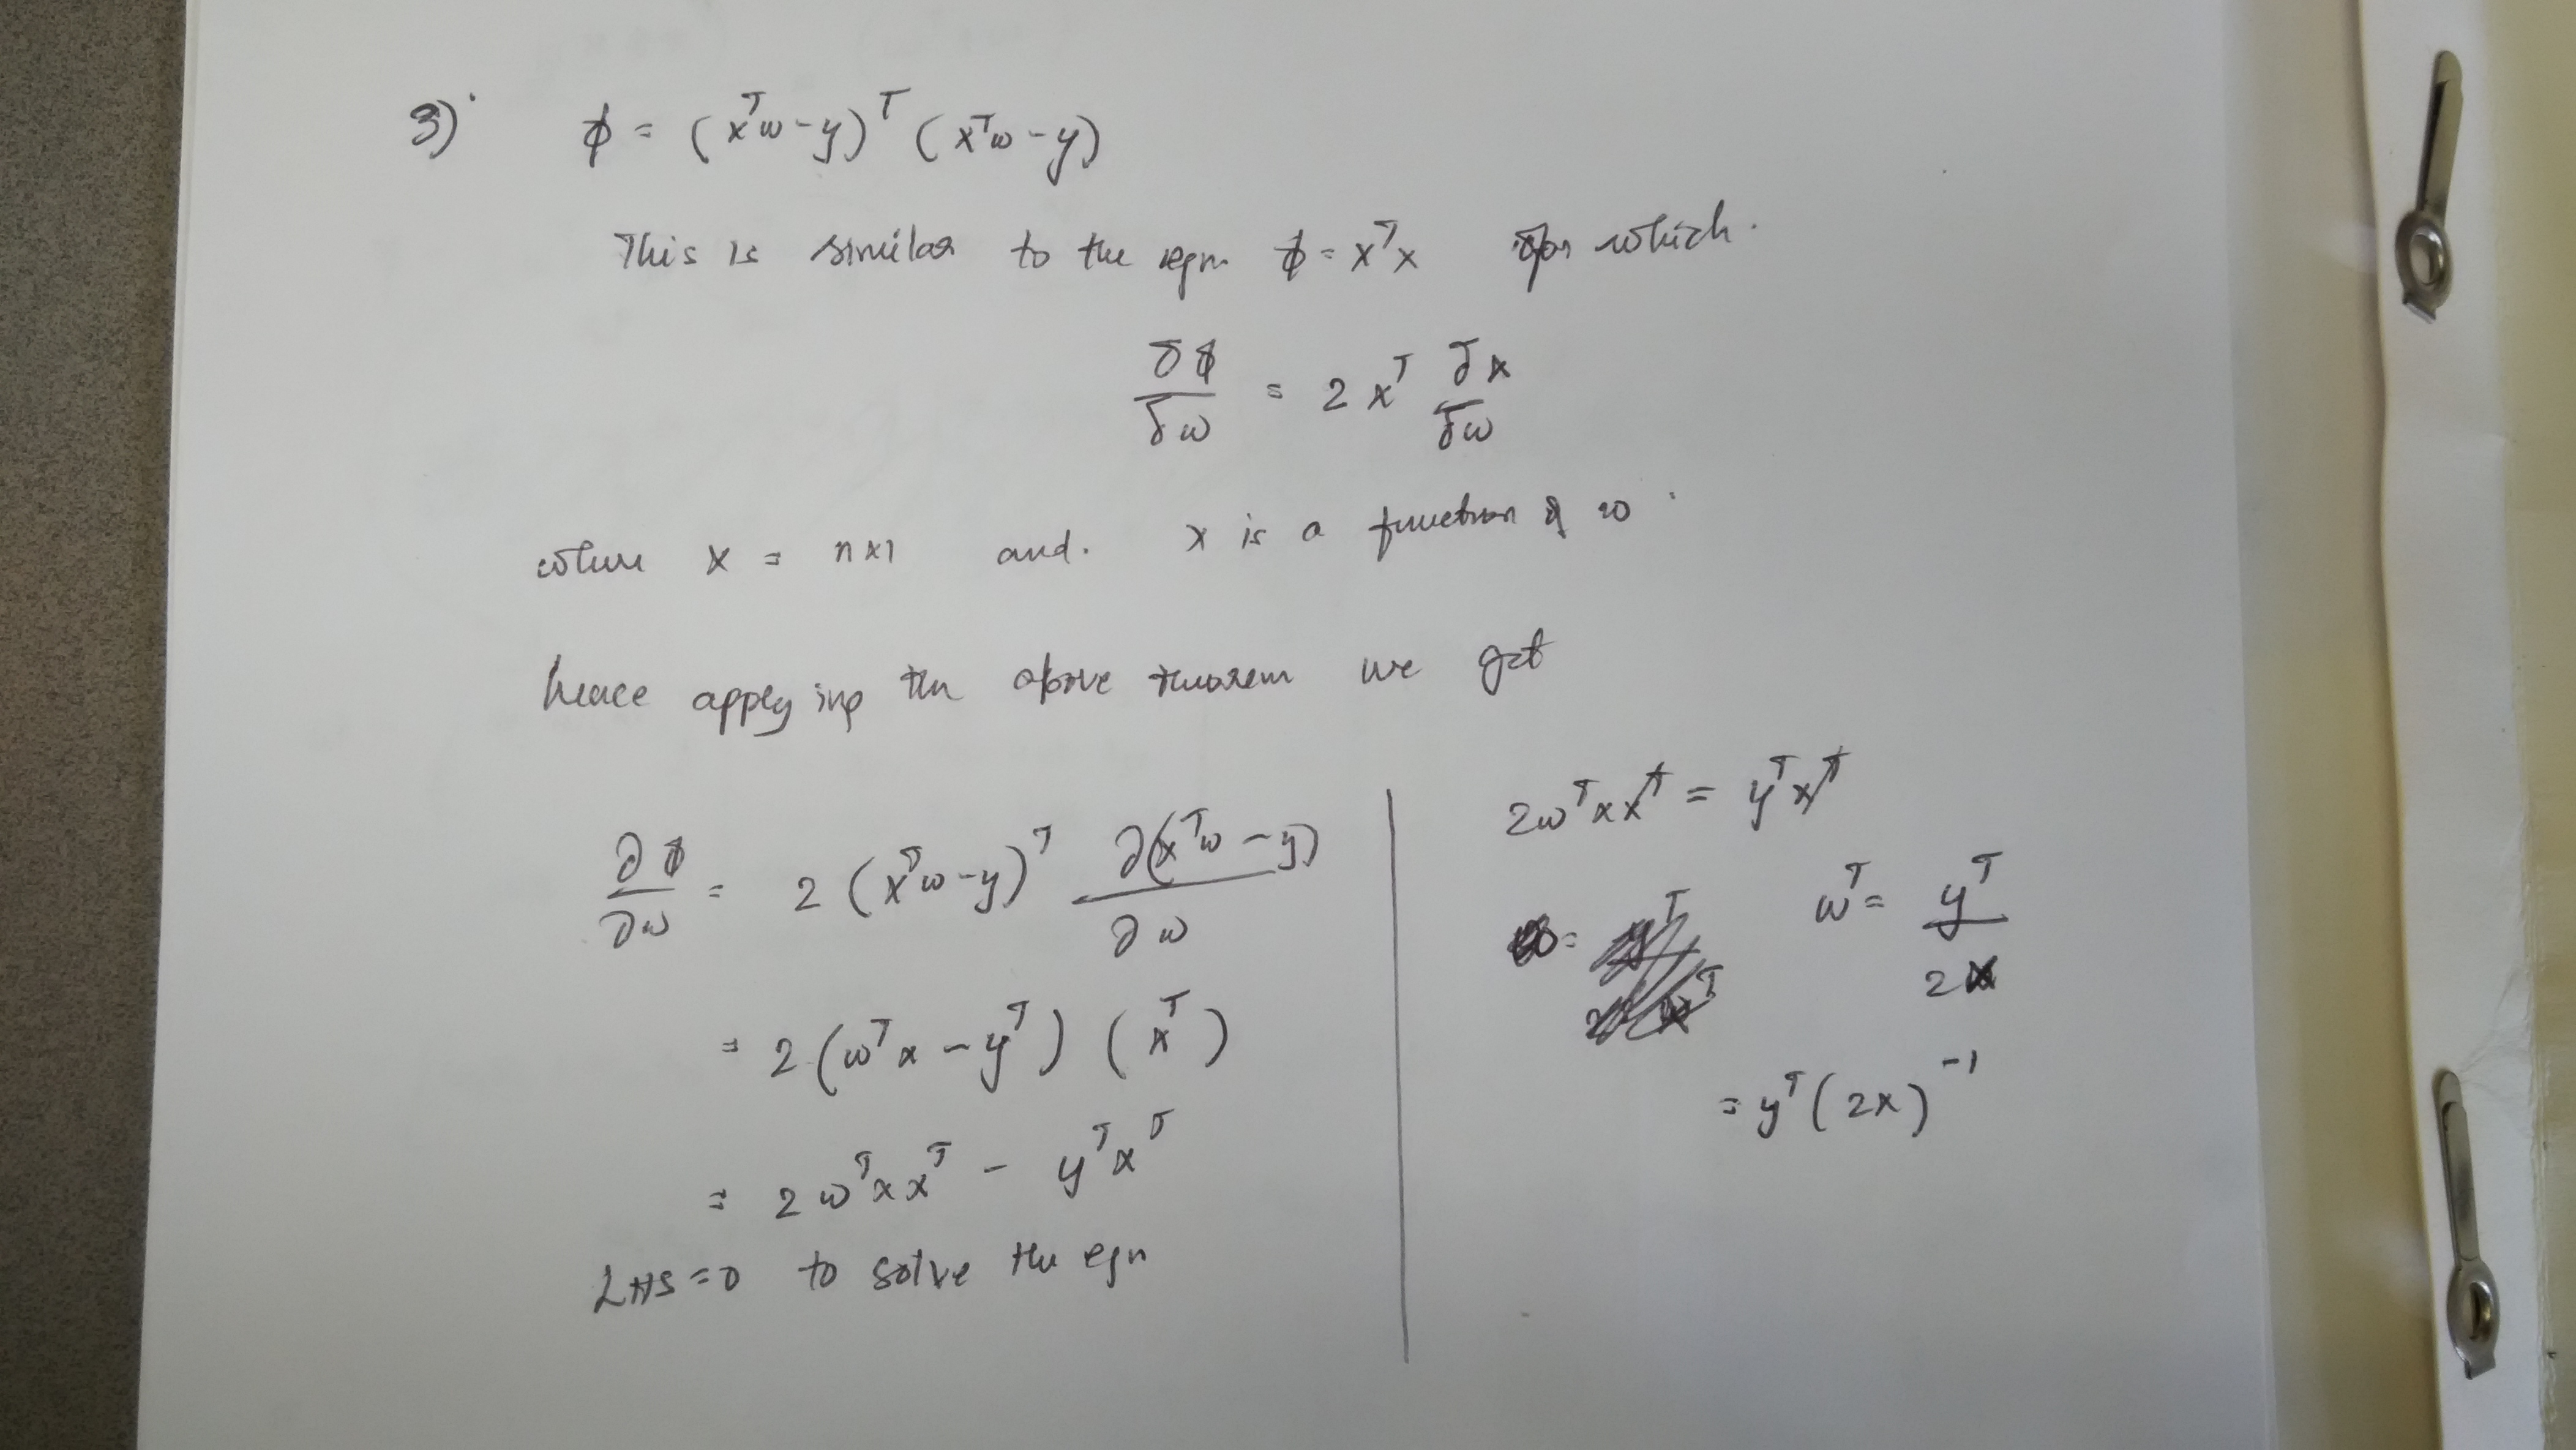 3) ϕ = (xᵀw - y)ᵀ (xᵀw - y)
This is similar to the eqn ϕ = xᵀx for which.
δϕ/δw = 2 xᵀ δx/δw
where x = n×1 and. x is a function of w.
hence applying the above theorem we get
∂ϕ/∂w = 2 (xᵀw - y)ᵀ ∂(xᵀw - y)/∂w
= 2 (wᵀx - yᵀ) (xᵀ)
= 2 wᵀxxᵀ - yᵀxᵀ
LHS = 0 to solve the eqn
2wᵀxxᵀ = yᵀxᵀ
wᵀ = yᵀ/2x
= yᵀ(2x)⁻¹